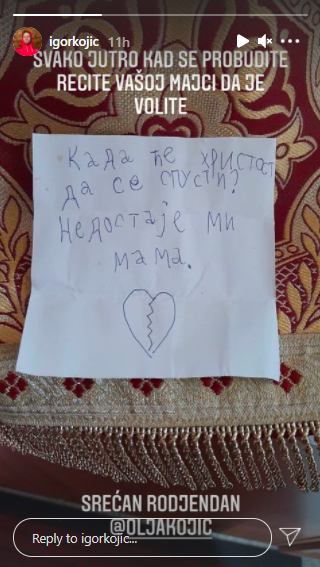 igorkojic 11h
SVAKO JUTRO KAD SE PROBUDITE
RECITE VAŠOJ MAJCI DA JE
VOLITE
Када ће христос
да се спусти?
Недостаје ми
мама.
SREĆAN RODJENDAN
@OLJAKOJIC
Reply to igorkojic...